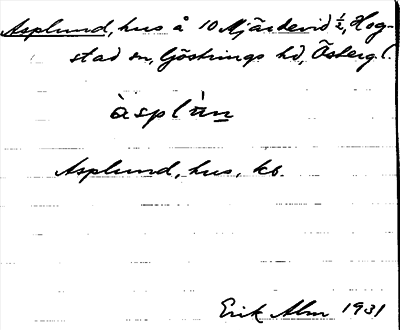 Asplund, hus å 10 Mjärdevid 1/2, Hog-
stad sn, Göstrings hd, Östergl.
àsplàn
Asplund, hus, kb.
Erik Alm 1931